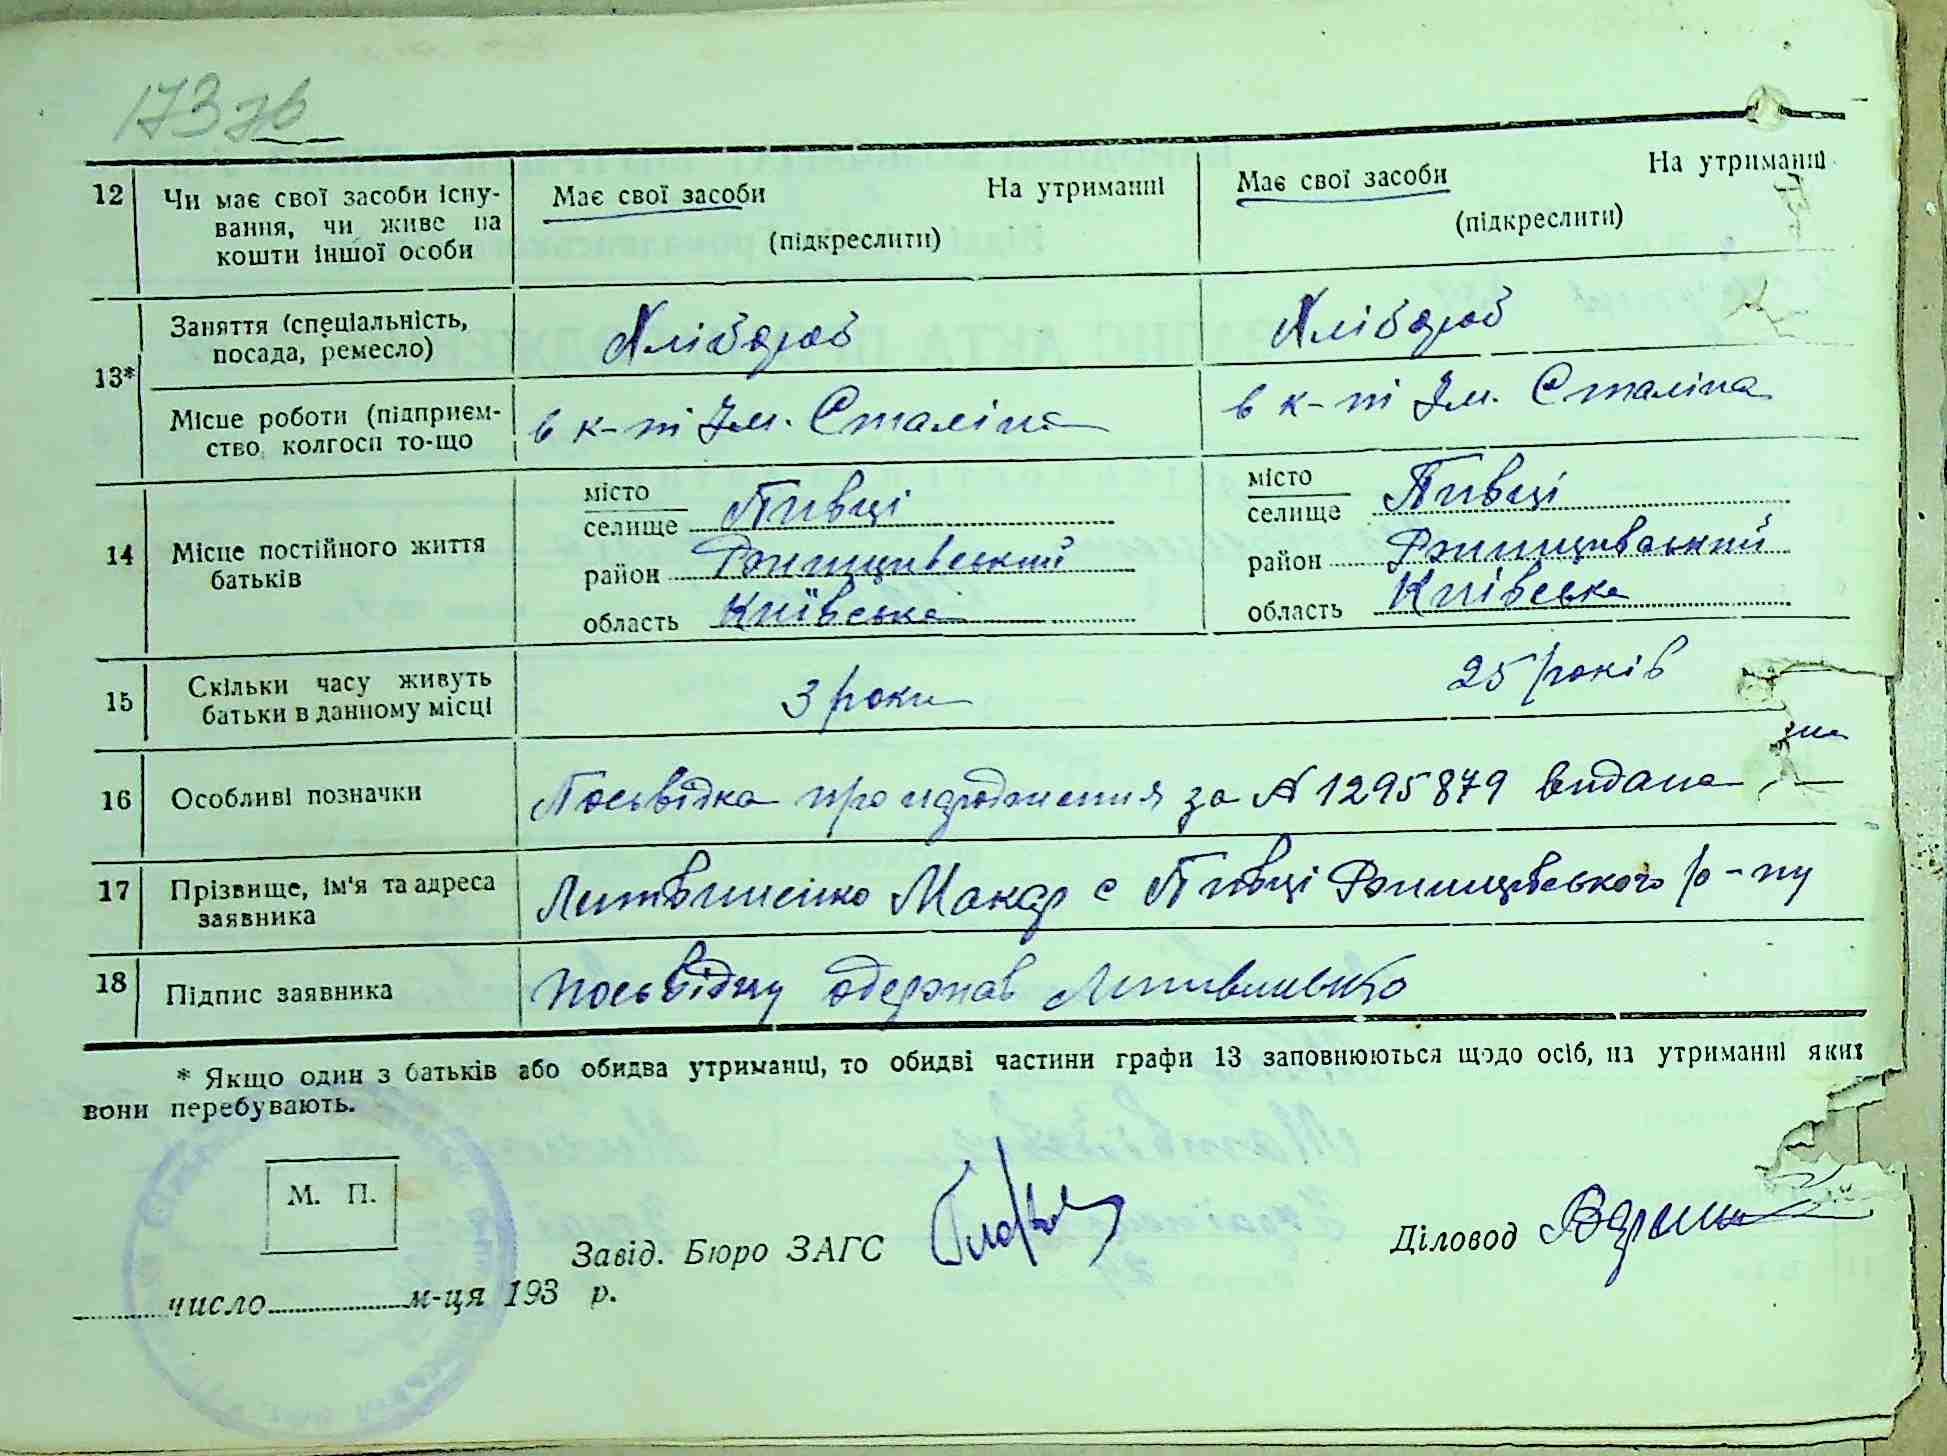 173 зв
12 Чи має свої засоби існу-
вання, чи живе на
кошти іншої особи
Має свої засоби На утриманні
(підкреслити)
Має свої засоби На утриманні
(підкреслити)
13* Заняття (спеціальність,
посада, ремесло)
Хлібороб
Хлібороб
Місце роботи (підприєм-
ство, колгосп то-що
в к-пі Ім. Сталіна
в к-пі Ім. Сталіна
14 Місце постійного життя
батьків
місто
селище Пивці
район
область Київська
місто
селище Пивці
район
область Київська
15 Скільки часу живуть
батьки в данному місці
3 роки
25 років
16 Особливі позначки
Посвідка про народження за № 1295879 видана
17 Прізвище, ім'я та адреса
заявника
Литвиненко Макар с Пивці р-ну
18 Підпис заявника
Посьвідку одержав Литвиненко
* Якщо один з батьків або обидва утриманці, то обидві частини графи 13 заповнюються щодо осіб, на утриманні яких
вони перебувають.
М. П.
Завід. Бюро ЗАГС
Діловод
число м-ця 193 р.